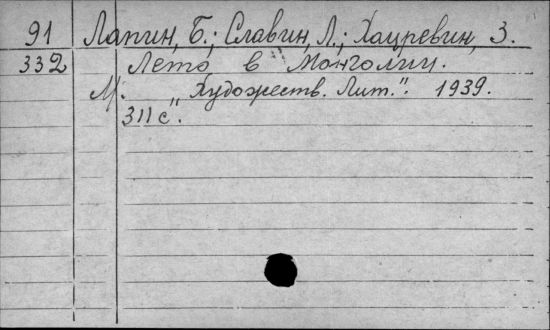 91 Лапин, Б.; Славин, Л.; Хацревин, З.
332 Лето в Монголии.
М. "Художеств. Лит.". 1939.
311 с.